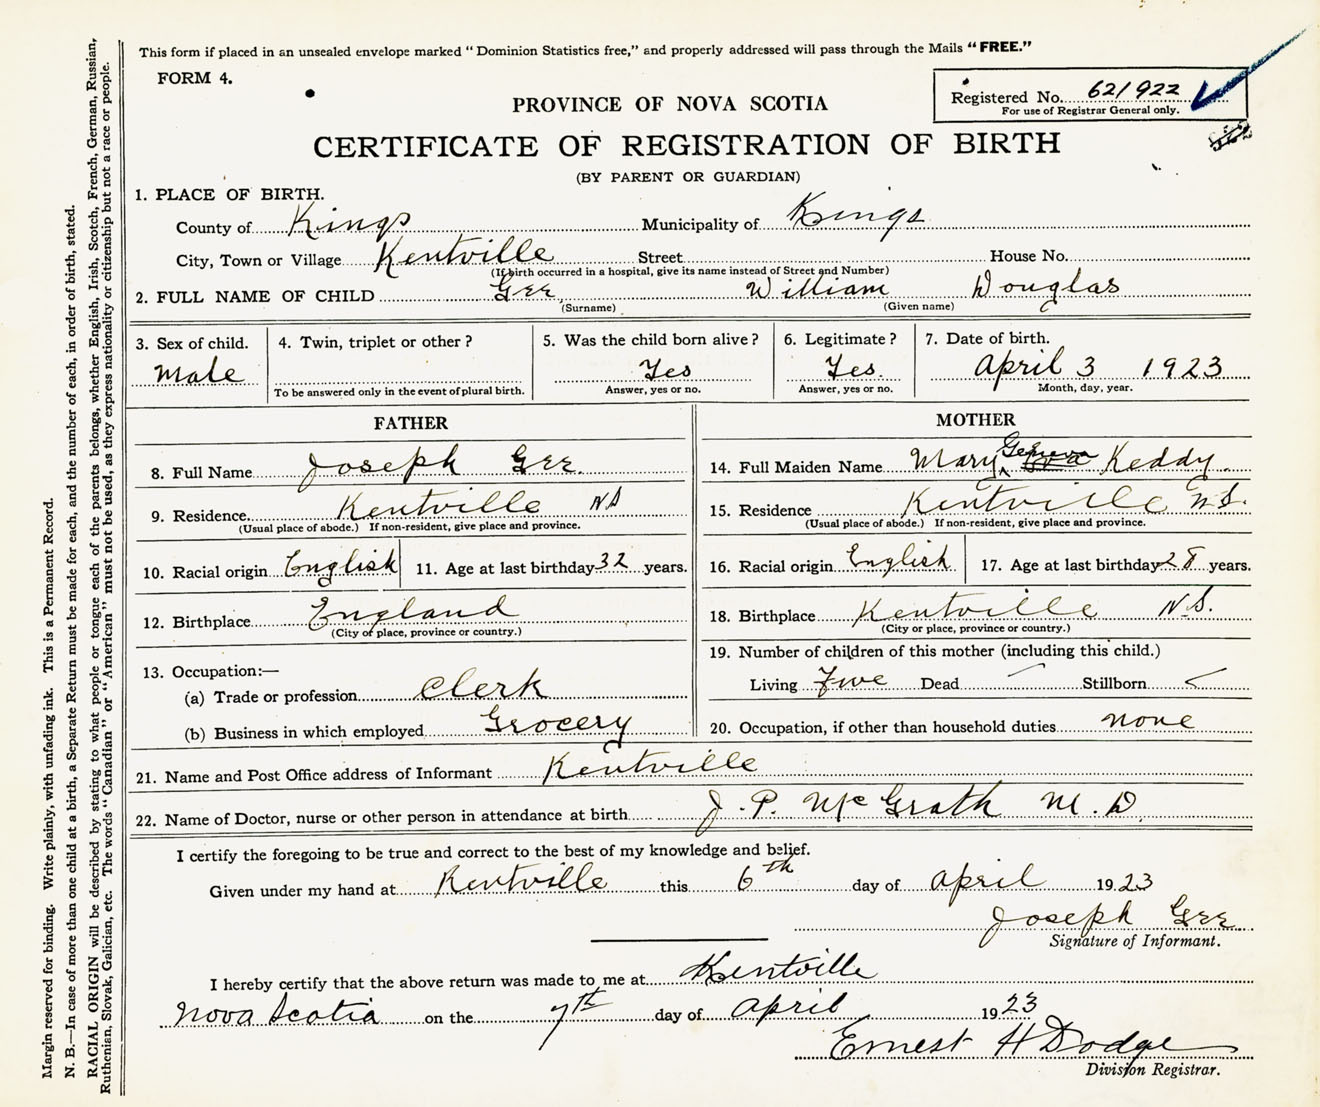 This form if placed in an unsealed envelope marked "Dominion Statistics free," and properly addressed will pass through the Mails "FREE."
FORM 4.
Registered No. 621922
For use of Registrar General only.
PROVINCE OF NOVA SCOTIA
CERTIFICATE OF REGISTRATION OF BIRTH
(BY PARENT OR GUARDIAN)
1. PLACE OF BIRTH.
County of Kings Municipality of Kings
City, Town or Village Kentville Street House No.
(If birth occurred in a hospital, give its name instead of Street and Number)
2. FULL NAME OF CHILD Gee William Douglas
(Surname) (Given name)
3. Sex of child. 4. Twin, triplet or other? 5. Was the child born alive? 6. Legitimate? 7. Date of birth.
Male Yes Yes. April 3 1923
To be answered only in the event of plural birth. Answer, yes or no. Answer, yes or no. Month, day, year.
FATHER
8. Full Name Joseph Gee.
9. Residence Kentville NS
(Usual place of abode.) If non-resident, give place and province.
10. Racial origin English 11. Age at last birthday 32 years.
12. Birthplace England
(City or place, province or country.)
13. Occupation:—
(a) Trade or profession Clerk
(b) Business in which employed Grocery
MOTHER
14. Full Maiden Name Mary Geneva Keddy.
15. Residence Kentville N.S.
(Usual place of abode.) If non-resident, give place and province.
16. Racial origin English 17. Age at last birthday 28 years.
18. Birthplace Kentville N.S.
(City or place, province or country.)
19. Number of children of this mother (including this child.)
Living Five Dead Stillborn
20. Occupation, if other than household duties none
21. Name and Post Office address of Informant Kentville
22. Name of Doctor, nurse or other person in attendance at birth J. P. McGrath M.D.
I certify the foregoing to be true and correct to the best of my knowledge and belief.
Given under my hand at Kentville this 6th day of April 1923
Joseph Gee
Signature of Informant.
I hereby certify that the above return was made to me at Kentville
Nova Scotia on the 7th day of April 1923
Ernest H Dodge
Division Registrar.
Margin reserved for binding. Write plainly, with unfading ink. This is a Permanent Record.
N. B.—In case of more than one child at a birth, a Separate Return must be made for each, and the number of each, in order of birth, stated.
RACIAL ORIGIN will be described by stating to what people or tongue each of the parents belongs, whether English, Irish, Scotch, French, German, Russian,
Ruthenian, Slovak, Galician, etc. The words "Canadian" or "American" must not be used, as they express nationality or citizenship but not a race or people.